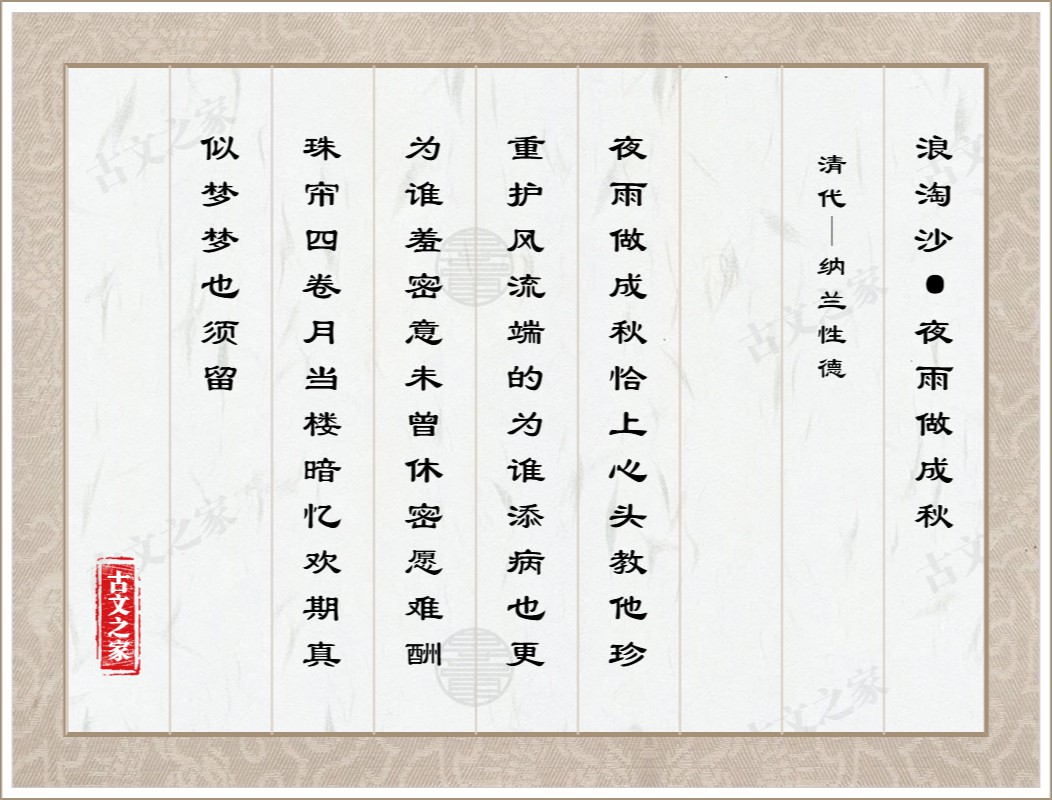 浪淘沙●夜雨做成秋
清代—纳兰性德
夜雨做成秋恰上心头教他珍
重护风流端的为谁添病也更
为谁羞密意未曾休密愿难酬
珠帘四卷月当楼暗忆欢期真
似梦梦也须留
古文之家
古文之家
古文之家
古文之家
古文之家